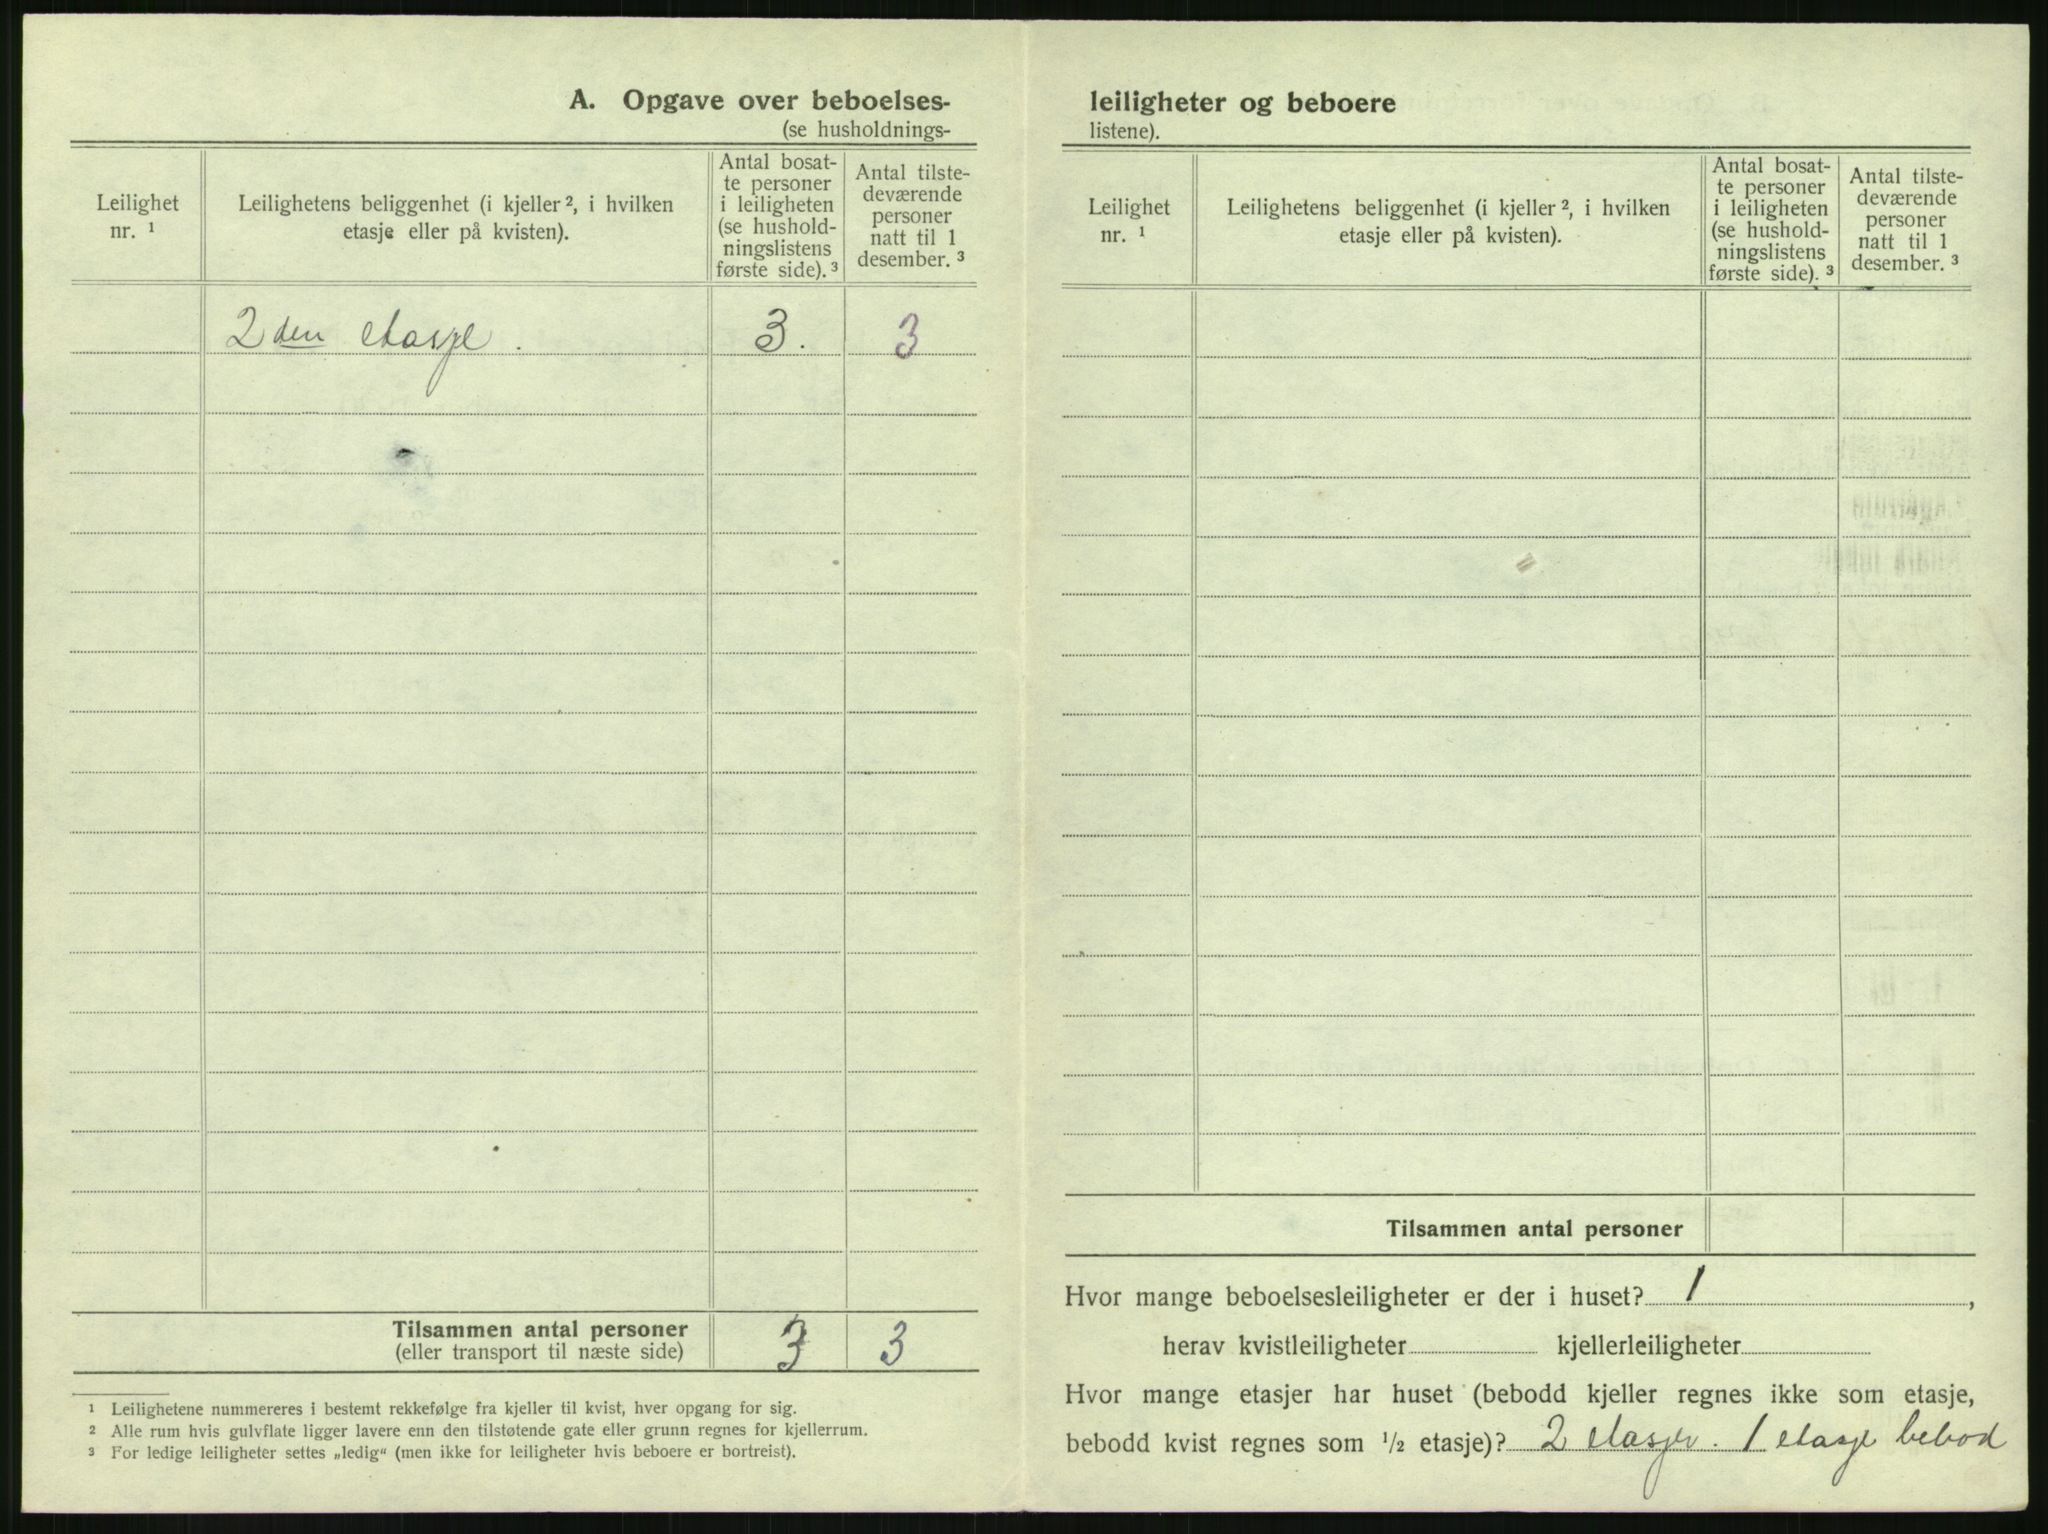 A. Opgave over beboelses-
(se husholdnings-
Leilighet
nr. ¹
Leilighetens beliggenhet (i kjeller ², i hvilken
etasje eller på kvisten).
Antal bosat-
te personer
i leiligheten
(se hushold-
ningslistens
første side). ³
Antal tilste-
deværende
personer
natt til 1
desember. ³
2den etasje. 3. 3
Tilsammen antal personer
(eller transport til næste side)
3 3
¹ Leilighetene nummereres i bestemt rekkefølge fra kjeller til kvist, hver opgang for sig.
² Alle rum hvis gulvflate ligger lavere enn den tilstøtende gate eller grunn regnes for kjellerrum.
³ For ledige leiligheter settes „ledig“ (men ikke for leiligheter hvis beboere er bortreist).
leiligheter og beboere
listene).
Leilighet
nr. ¹
Leilighetens beliggenhet (i kjeller ², i hvilken
etasje eller på kvisten).
Antal bosat-
te personer
i leiligheten
(se hushold-
ningslistens
første side). ³
Antal tilste-
deværende
personer
natt til 1
desember. ³
Tilsammen antal personer
Hvor mange beboelsesleiligheter er der i huset? 1,
herav kvistleiligheter kjellerleiligheter
Hvor mange etasjer har huset (bebodd kjeller regnes ikke som etasje,
bebodd kvist regnes som ½ etasje)? 2 etasjer. 1 etasje bebod